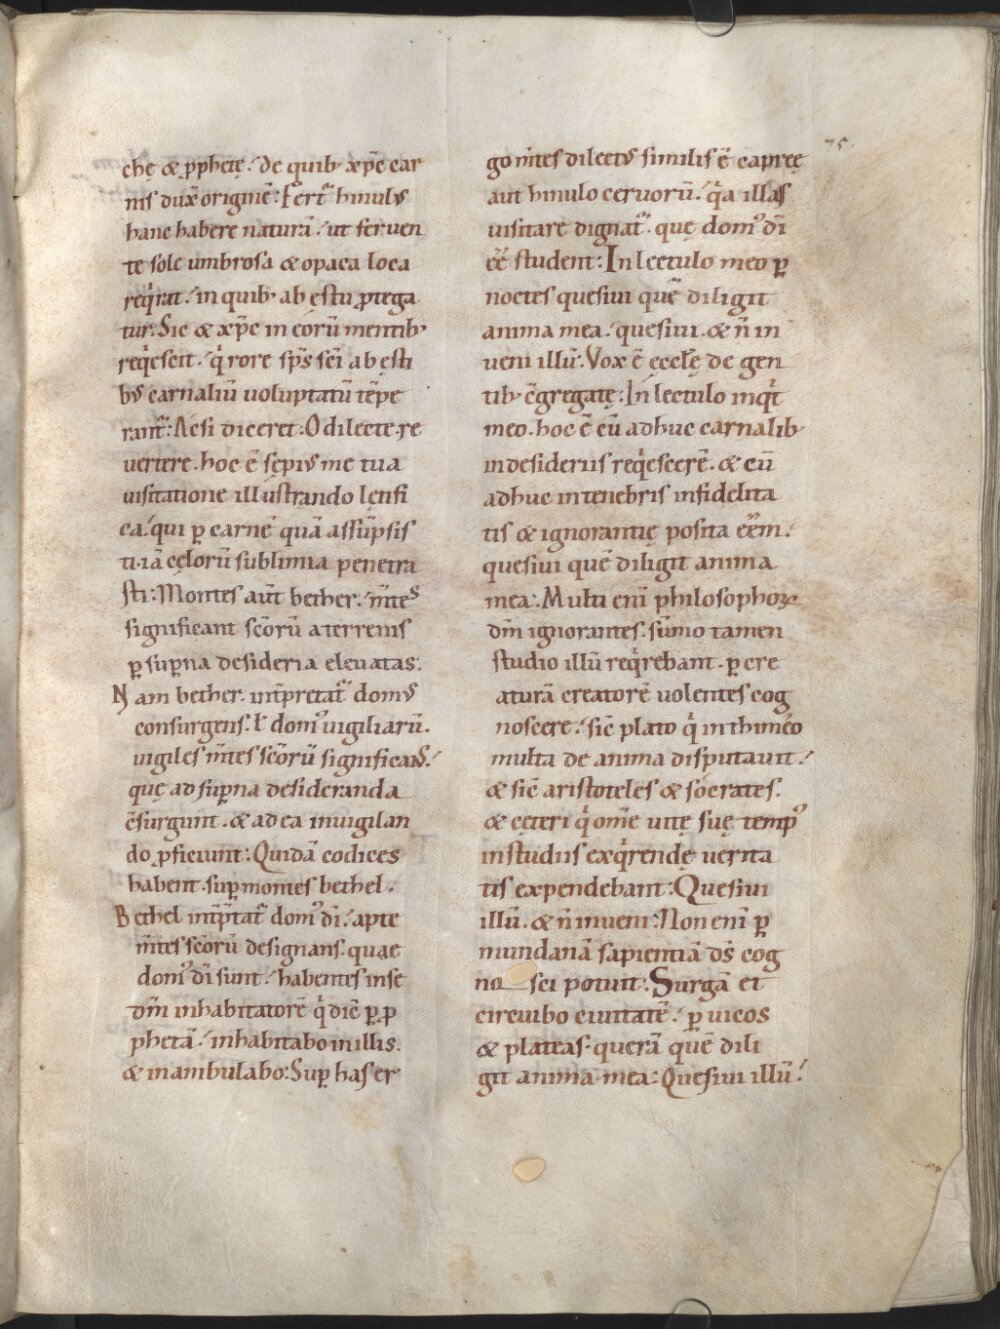 75.
chę & ꝓphetę. de quib; xp̄c car
nis dux̄ originē. Fert᷑ hinulꝰ
hanc habere naturā. ut feruen
te sole umbrosa & opaca loca
reqͥrat. in quib; ab ęstu ꝓtega
tur. Sic & xp̄c in eorū mentib;
reqͥescit. qͥ rore sp̄s sc̄i ab ęsti
bꝰ carnaliū uoluptatū tēpe
rant᷑. Acsi diceret. O dilecte re
uertere. hoc ē sępiꝰ me tua
uisitatione illustrando lętifi
ca. qui ꝑ carnē quā assūpsis
ti. iā cęlorū sublimia penetra
sti. Montes aut̄ bether. m̄tes
significant sc̄orū a terrenis
ꝑ suꝑna desideria eleuatas.
Nam bether. int̄pretat᷑ domꝰ
consurgens. ł domꝰ uigiliarū.
uigiles m̄tes sc̄orū significans.
quę ad suꝑna desideranda
c̄surgunt. & ad ea inuigilan
do ꝓficiunt. Quidā codices
habent. suꝑ montes bethel.
Bethel int̄p̄tat᷑ domꝰ dī. apte
m̄tes sc̄orū designans. quae
domꝰ dī sunt. habentes in se
dm̄ inhabitatorē qͥ dic̄ ꝑ ꝓ
phetā. inhabitabo in illis.
& inambulabo. Suꝑ hos er
go m̄tes dilectꝰ similis ē capreę
aut hinulo ceruorū. qͥa illas
uisitare dignat᷑. quę domꝰ dī
ee᷑ student. In lectulo meo ꝑ
noctes quesiui quē diligit
anima mea. quesiui. & n̄ in
ueni illū. Vox ē ęccłę de gen
tib; c̄gregatę. In lectulo inqͥt
meo. hoc ē cū adhuc carnalib;
in desideriis reqͥescerē. & cū
adhuc in tenebris infidelita
tis & ignorantię posita eēm.
quesiui quē diligit anima
mea. Multi enī philosophoꝝ
dm̄ ignorantes. sūmo tamen
studio illū reqͥrebant. ꝑ cre
aturā creatorē uolentes cog
noscere. sic̄ plato qͥ in thimeo
multa de anima disputauit.
& sic̄ aristoteles & socrates.
& cęteri qͥ om̄e uitę suę tempꝰ
in studiis exqͥrendę uerita
tis expendebant. Quesiui
illū. & n̄ inueni. Non enī ꝑ
mundanā sapientiā ds̄ cog
no sci potuit. Surgā et
circuibo ciuitatē. ꝑ uicos
& plateas. querā quē dili
git anima mea. Quesiui illū.